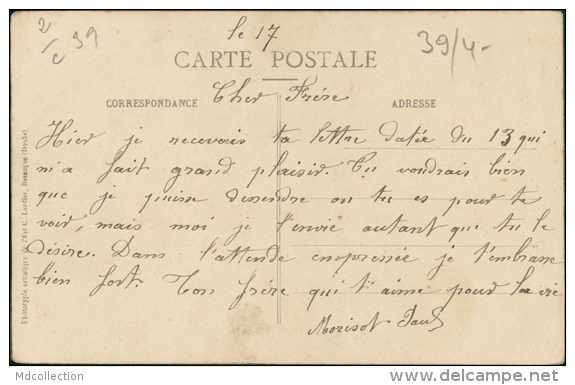 le 17
2/c 39
39/4-
CARTE POSTALE
Cher Frére
CORRESPONDANCE
ADRESSE
Hier je recevais ta lettre datée du 13 qui
m'a fait grand plaisir. Tu voudrais bien
que je puisse dessendre ou tu es pour te
voir, mais moi je l'envie autant que tu le
désire. Dans l'attende empressée je t'embrasse
bien fort. Ton frére qui t'aime pour la vie
Morisot Paul
Phototypie artistique de l'Est C. Lardier, Besançon (Doubs)
Mdcollection
http://www.delcampe.net